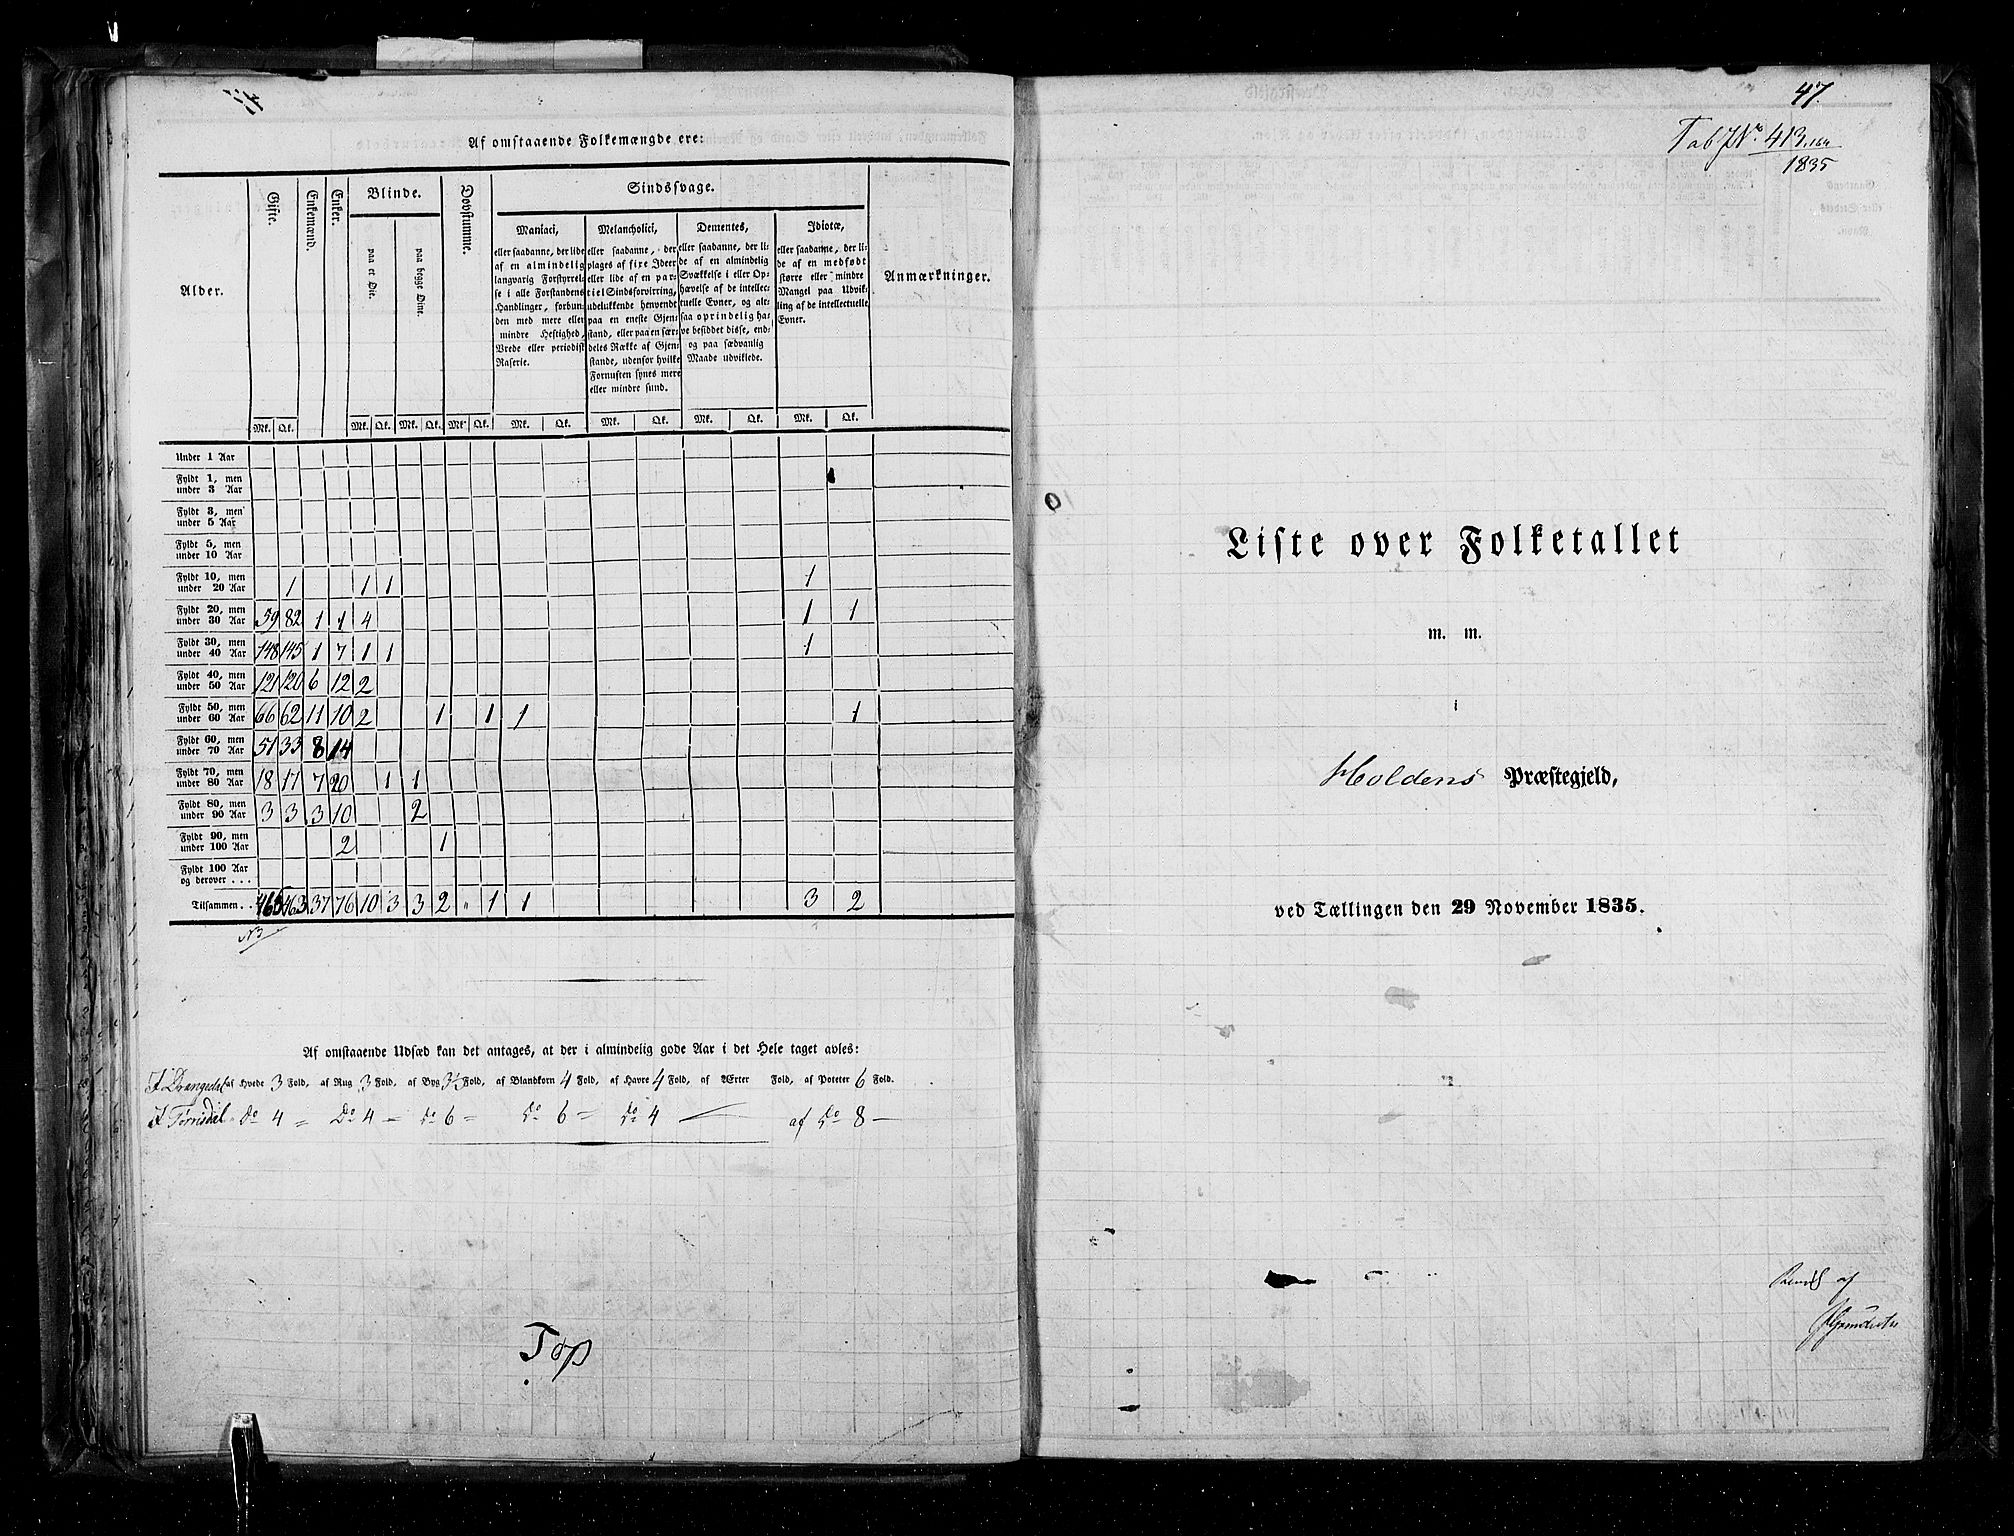 Af omstaaende Folkemængde ere:
Alder. Gifte. Enkemænd. Enker. Blinde. Døvstumme. Sindssvage. Anmærkninger.
paa et Øie. paa begge Øine.
Maniaci, eller saadanne, der lide af en almindelig langvarig Forstyrrelse i alle Forstandens Handlinger, forbunden med mere eller mindre Heftighed, Vrede eller periodisk Raserie.
Melancholici, eller saadanne, der plages af fixe Ideer eller lide af en partiel Sindsforvirring, udelukkende henvendt paa en eneste Gjenstand, eller paa en særdeles Række af Gjenstande, udenfor hvilke Fornuften synes mere eller mindre sund.
Dementes, eller saadanne, der lide af en almindelig Svækkelse i eller Ophævelse af de intellectuelle Evner, og altsaa oprindelig have besiddet disse, endog paa sædvanlig Maade udviklede.
Idiotæ, eller saadanne, der lide af en medfødt større eller mindre Mangel paa Udvikling af de intellectuelle Evner.
Mk. Qk. Mk. Qk. Mk. Qk. Mk. Qk. Mk. Qk. Mk. Qk. Mk. Qk. Mk. Qk.
Under 1 Aar
Fyldt 1, men under 3 Aar
Fyldt 3, men under 5 Aar
Fyldt 5, men under 10 Aar
Fyldt 10, men under 20 Aar 1 1 1 1
Fyldt 20, men under 30 Aar 59 82 1 1 4 1 1
Fyldt 30, men under 40 Aar 148 145 1 7 1 1 1
Fyldt 40, men under 50 Aar 121 120 6 12 2
Fyldt 50, men under 60 Aar 66 62 11 10 2 1 1 1 1
Fyldt 60, men under 70 Aar 51 33 8 14
Fyldt 70, men under 80 Aar 18 17 7 20 1 1
Fyldt 80, men under 90 Aar 3 3 3 10 2
Fyldt 90, men under 100 Aar 2 1
Fyldt 100 Aar og derover . . .
Tilsammen . . 463 37 76 10 3 3 2 " 1 1 3 2
Af omstaaende Udsæd kan det antages, at der i almindelig gode Aar i det Hele taget avles:
I Drangedal af Hvede 3 Fold, af Rug 3 Fold, af Byg 3½ Fold, af Blandkorn 4 Fold, af Havre 4 Fold, af Ærter Fold, af Poteter 6 Fold.
I Tørrisdal do 4 = Do 4 = do 6 = do 6 = do 4 — af do 8 —
Top
47.
Tab J No 413
1835
Liste over Folketallet
m. m.
i
Holdens Præstegjeld,
ved Tællingen den 29 November 1835.
af